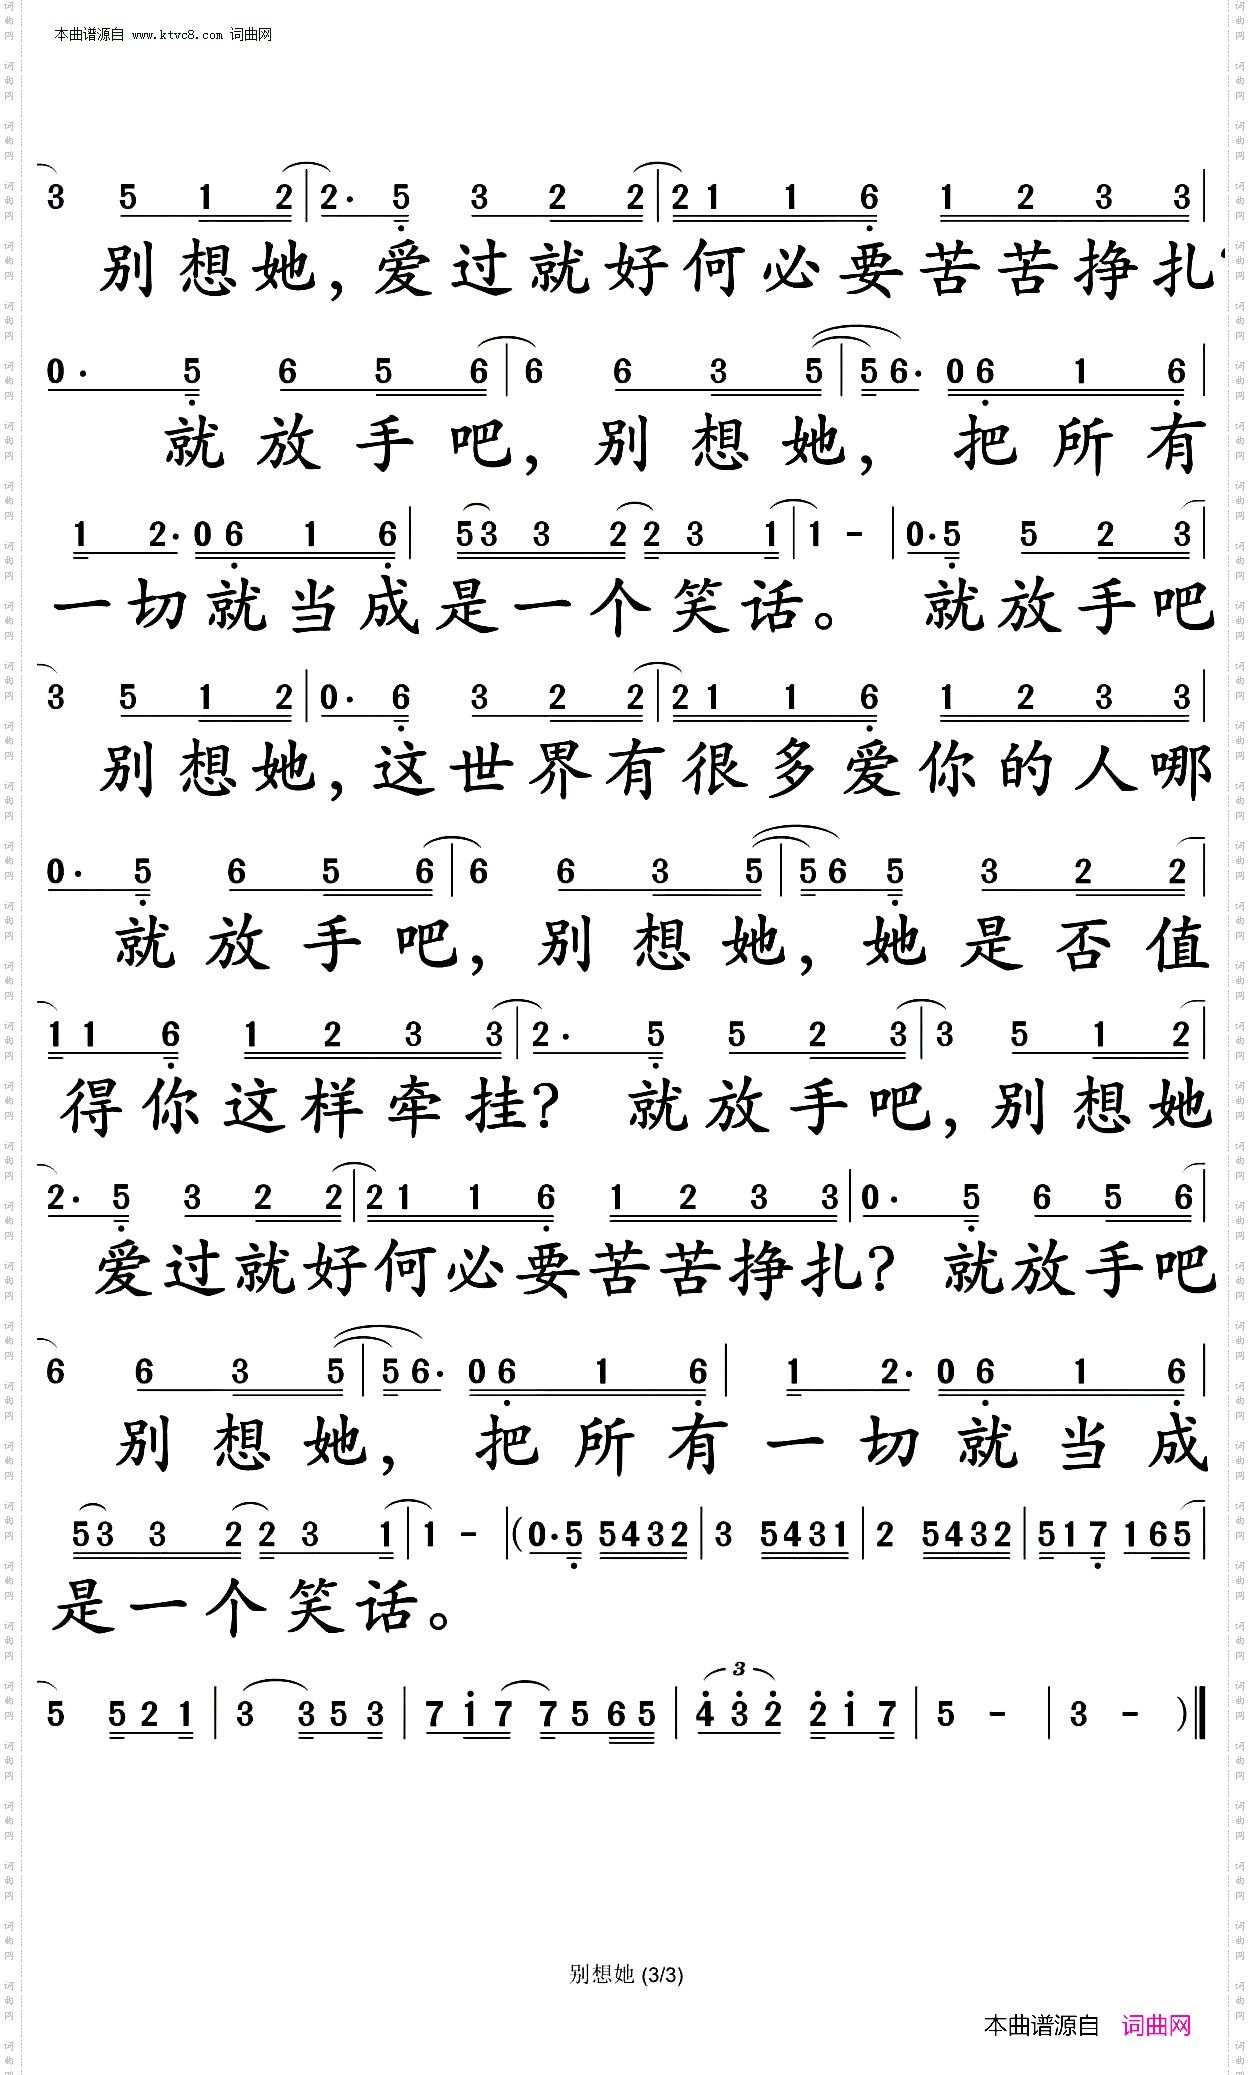 本曲谱源自 www.ktvc8.com 词曲网
3 5 1 2 | 2. 5 3 2 2 | 2 1 1 6 1 2 3 3 |
别想她，爱过就好何必要苦苦挣扎？
0. 5 6 5 6 | 6 6 3 5 | 5 6. 0 6 1 6 |
就放手吧，别想她，把所有
1 2. 0 6 1 6 | 5 3 3 2 2 3 1 | 1 - | 0. 5 5 2 3 |
一切就当成是一个笑话。就放手吧
3 5 1 2 | 0. 6 3 2 2 | 2 1 1 6 1 2 3 3 |
别想她，这世界有很多爱你的人哪
0. 5 6 5 6 | 6 6 3 5 | 5 6 5 3 2 2 |
就放手吧，别想她，她是否值
1 1 6 1 2 3 3 | 2. 5 5 2 3 | 3 5 1 2 |
得你这样牵挂？就放手吧，别想她
2. 5 3 2 2 | 2 1 1 6 1 2 3 3 | 0. 5 6 5 6 |
爱过就好何必要苦苦挣扎？就放手吧
6 6 3 5 | 5 6. 0 6 1 6 | 1 2. 0 6 1 6 |
别想她，把所有一切就当成
5 3 3 2 2 3 1 | 1 - | (0. 5 5 4 3 2 | 3 5 4 3 1 | 2 5 4 3 2 | 5 1 7 1 6 5 |
是一个笑话。
5 5 2 1 | 3 3 5 3 | 7 1 7 7 5 6 5 | 3 4 3 2 2 1 7 | 5 - | 3 - )
别想她 (3/3)
本曲谱源自 词曲网
词曲网